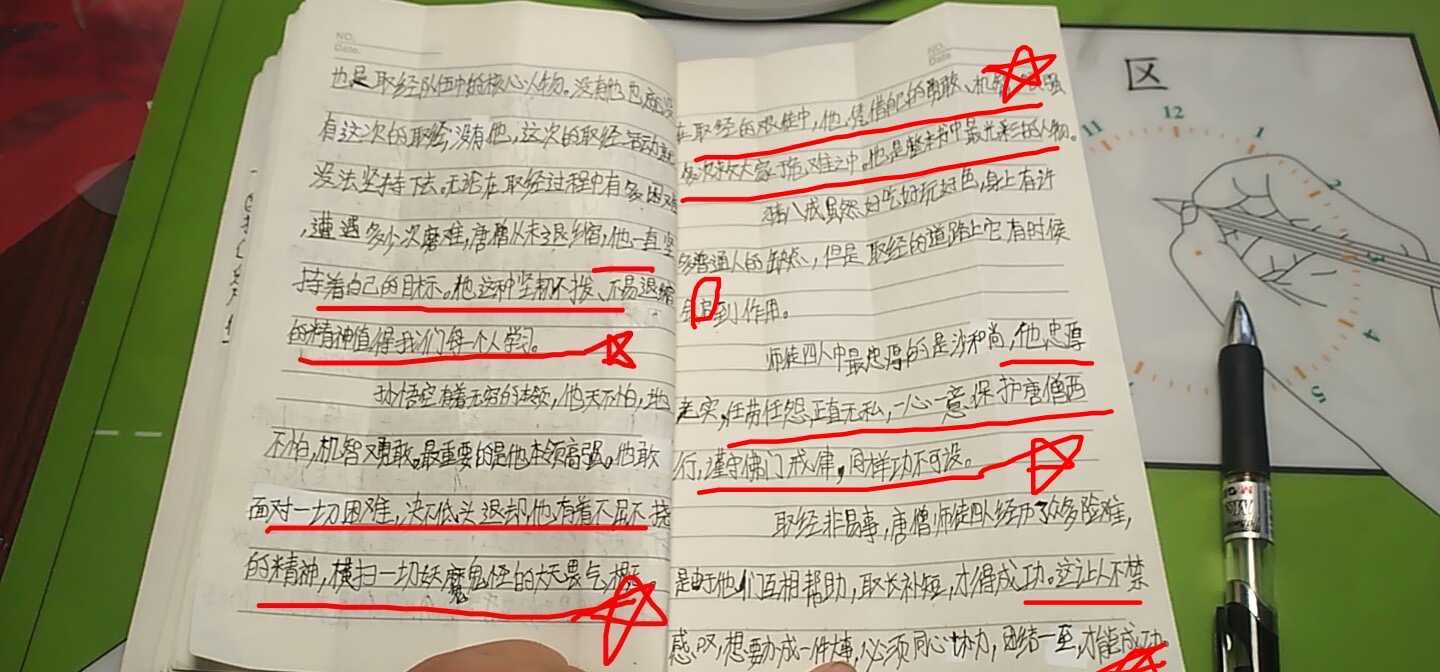 NO.
Date.
也是取经队伍中的核心人物。没有他也就没
有这次的取经,没有他,这次的取经活动就
没法坚持下去。无论在取经过程中有多困难
,遭遇多少次磨难,唐僧从未退缩,他一直坚
持着自己的目标。他这种坚韧不拔、不易退缩
的精神值得我们每一个人学习。
孙悟空有着无穷的本领,他天不怕,地
不怕,机智又勇敢。最重要的是他本领高强。他敢
面对一切困难,决不低头退却,他有着不屈不挠
的精神,横扫一切妖魔鬼怪的大无畏气概
NO.
Date
在取经的艰难中,他凭借自己的勇敢、机智
多次救大家于危难之中。他是整本书中最光彩的人物。
猪八戒虽然好吃好玩好色,身上有许
多普通人的缺点,但是取经的道路上它有时候
到作用。
师徒四人中最忠厚的是沙和尚,他忠厚
老实,任劳任怨,正直无私,一心一意保护唐僧西
行,谨守佛门戒律,同样功不可没。
取经非易事,唐僧师徒四人经历了众多险难,
是由于他们互相帮助,取长补短,才得成功。这让人不禁
感叹,想要办成一件大事,必须同心协力,团结一至,才能成功
区
11
12
1
2
3
4
5